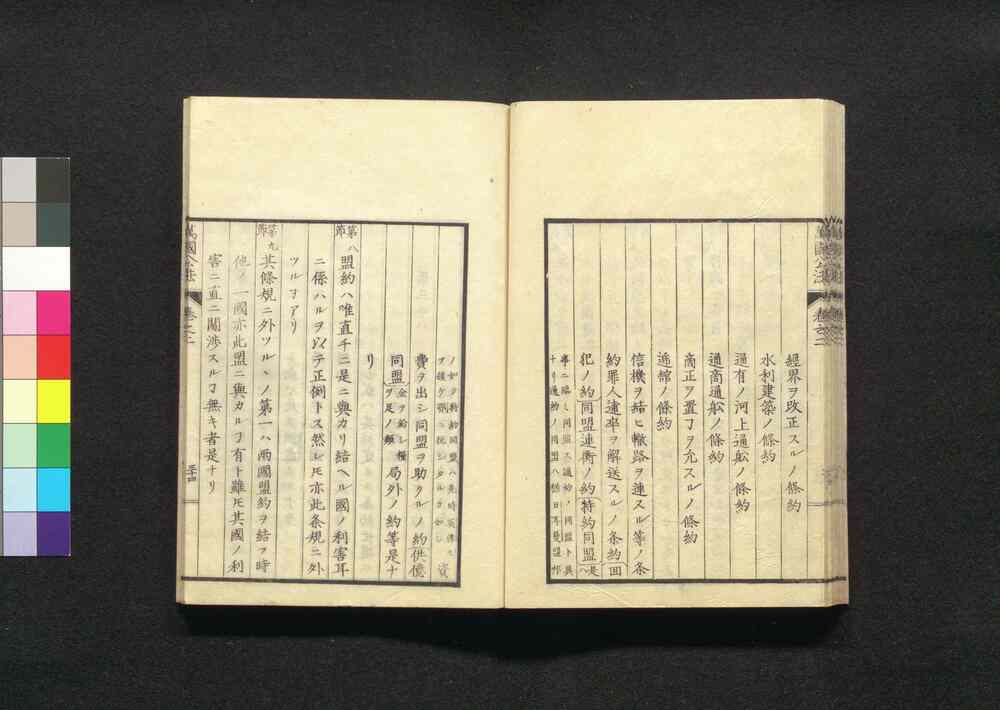 經界ヲ改正スルノ條約
水利建築ノ條約
逓有ノ河上通舩ノ條約
通商通舩ノ條約
商正ヲ置フヲ允スルノ條約
逓舘ノ條約
信機ヲ結ヒ轍路ヲ連スル等ノ条
約罪人逋卒ヲ解送スルノ条約回
犯ノ約同盟連衡ノ約特約同盟
費ヲ出シ同盟ヲ助クルノ約供億
同盟
局外ノ約等是ナ
リ
第八節
盟約ハ唯直チニ是ニ與カリ結ヘル國ノ利害耳
ニ係ハルヲ以テ正例トス然レ𪜈亦此条規ニ外
ツルヿアリ
第九節
其條規ニ外ツルヽノ第一ハ兩國盟約ヲ結フ時
他ノ一國亦此盟ニ與カルヿ有ト雖𪜈其國ノ利
害ニ直ニ關渉スルヿ無キ者是ナリ
萬國公法
卷之二
三十四